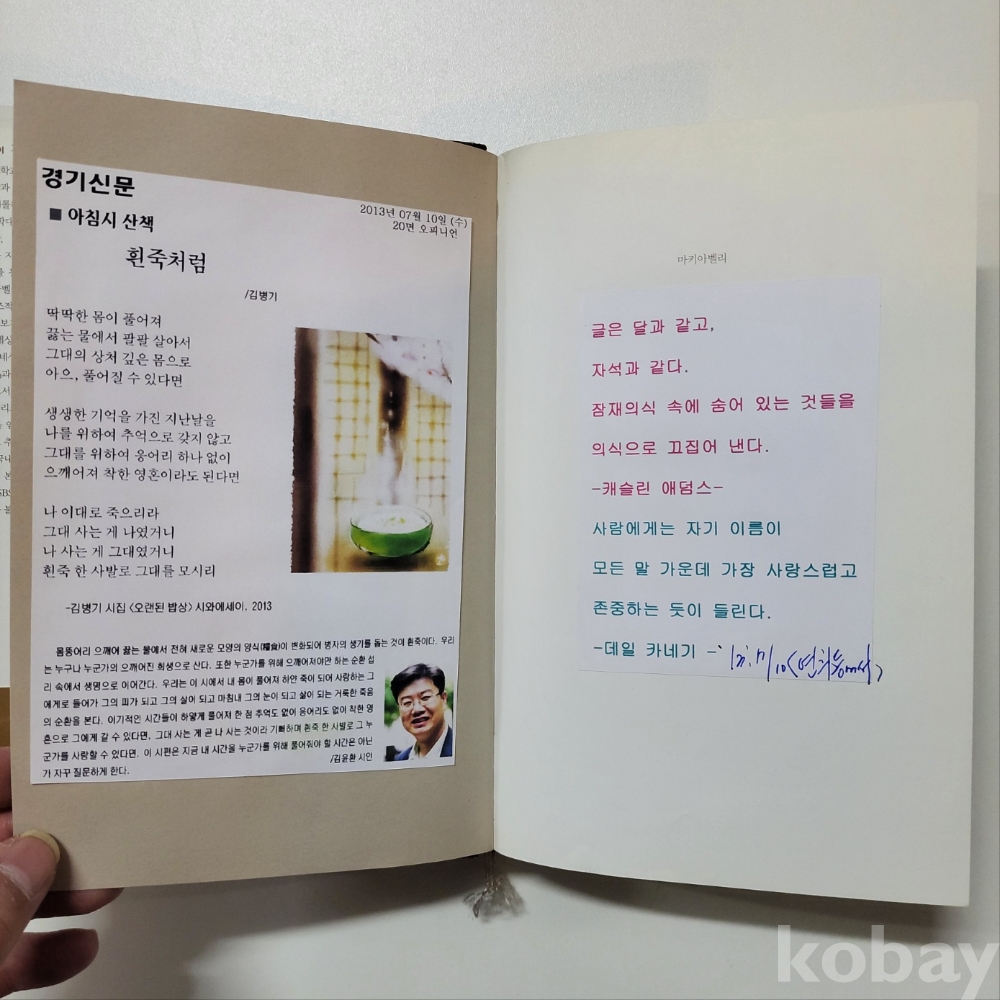 경기신문
2013년 07월 10일 (수)
20면 오피니언
■ 아침시 산책
흰죽처럼
/김병기
딱딱한 몸이 풀어져
끓는 물에서 팔팔 살아서
그대의 상처 깊은 몸으로
아으, 풀어질 수 있다면
생생한 기억을 가진 지난날을
나를 위하여 추억으로 갖지 않고
그대를 위하여 웅어리 하나 없이
으깨어져 착한 영혼이라도 된다면
나 이대로 죽으리라
그대 사는 게 나였거니
나 사는 게 그대였거니
흰죽 한 사발로 그대를 모시리
-김병기 시집 <오랜된 밥상> 시와에세이. 2013
몸뚱어리 으깨어 끓는 물에서 전혀 새로운 모양의 양식(糧食)이 변화되어 병자의 생기를 돕는 것이 흰죽이다. 우리
는 누구나 누군가의 으깨어진 희생으로 산다. 또한 누군가를 위해 으깨어져야만 하는 순환 섭
리 속에서 생명으로 이어간다. 우리는 이 시에서 내 몸이 풀어져 하얀 죽이 되어 사랑하는 그
에게로 들어가 그의 피가 되고 그의 살이 되고 마침내 그의 눈이 되고 삶이 되는 거룩한 죽음
의 순환을 본다. 이기적인 시간들이 하얗게 풀어져 한 점 추억도 없이 응어리도 없이 착한 영
혼으로 그에게 갈 수 있다면, 그대 사는 게 곧 나 사는 것이라 기뻐하며 흰죽 한 사발로 그 누
군가를 사랑할 수 있다면. 이 시편은 지금 내 시간을 누군가를 위해 풀어줘야 할 시간은 아닌
가 자꾸 질문하게 한다.
/김윤환 시인
마키아벨리
글은 달과 같고,
자석과 같다.
잠재의식 속에 숨어 있는 것들을
의식으로 끄집어 낸다.
-캐슬린 애덤스-
사람에게는 자기 이름이
모든 말 가운데 가장 사랑스럽고
존중하는 듯이 들린다.
-데일 카네기 -
kobay